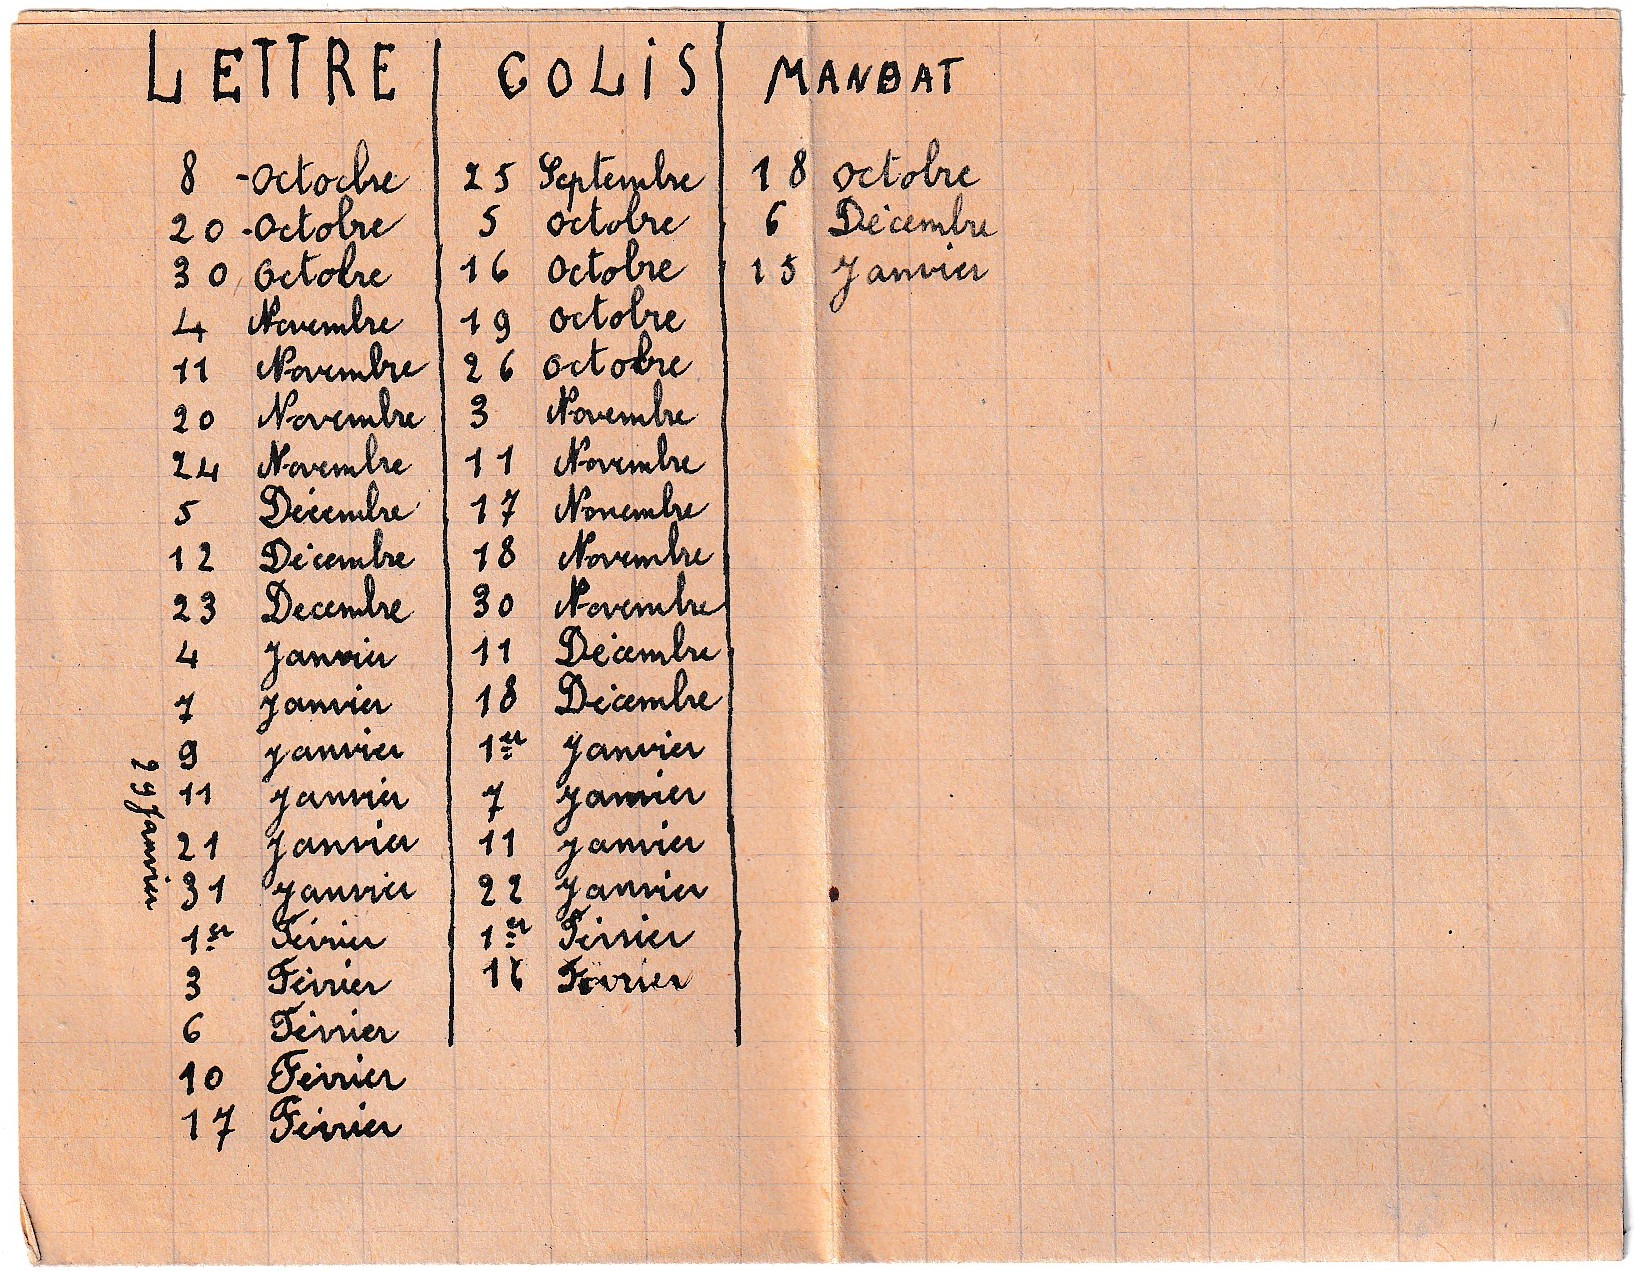 LETTRE COLIS MANDAT
8 -Octocbre 25 Septembre 18 octobre
20 -Octobre 5 octobre 6 Décembre
30 Octobre 16 Octobre 15 Janvier
4 Novembre 19 octobre
11 Novembre 26 octobre
20 Novembre 3 Novembre
24 Novembre 11 Novembre
5 Décembre 17 Novembre
12 Décembre 18 Novembre
23 Decembre 30 Novembre
4 Janvier 11 Décembre
7 Janvier 18 Décembre
9 Janvier 1er Janvier
11 Janvier 7 Janvier
21 Janvier 11 Janvier
31 Janvier 22 Janvier
1er Février 1er Février
3 Février 16 Février
6 Février
10 Février
17 Février
29 Janvier